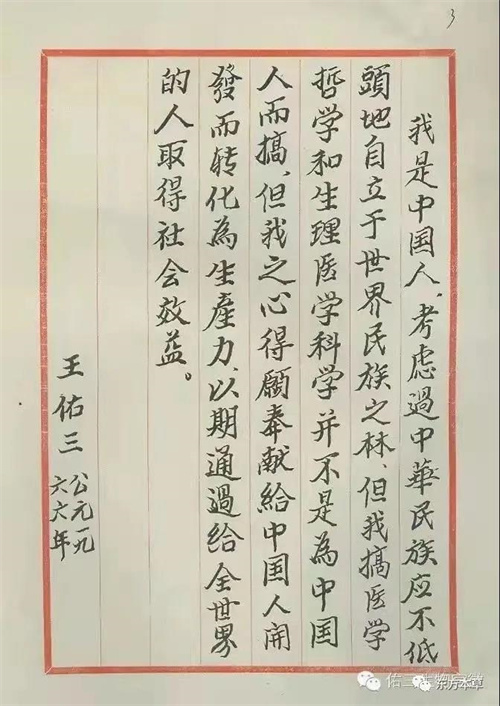 3
我是中国人、考虑過中華民族应不低
頭地自立于世界民族之林、但我搞医学
哲学和生理医学科学并不是為中国
人而搞、但我之心得願奉献給中国人開
發而转化為生産力、以期通過给全世界
的人取得社会效益。
王佑三
公元一九
六六年
东方本草